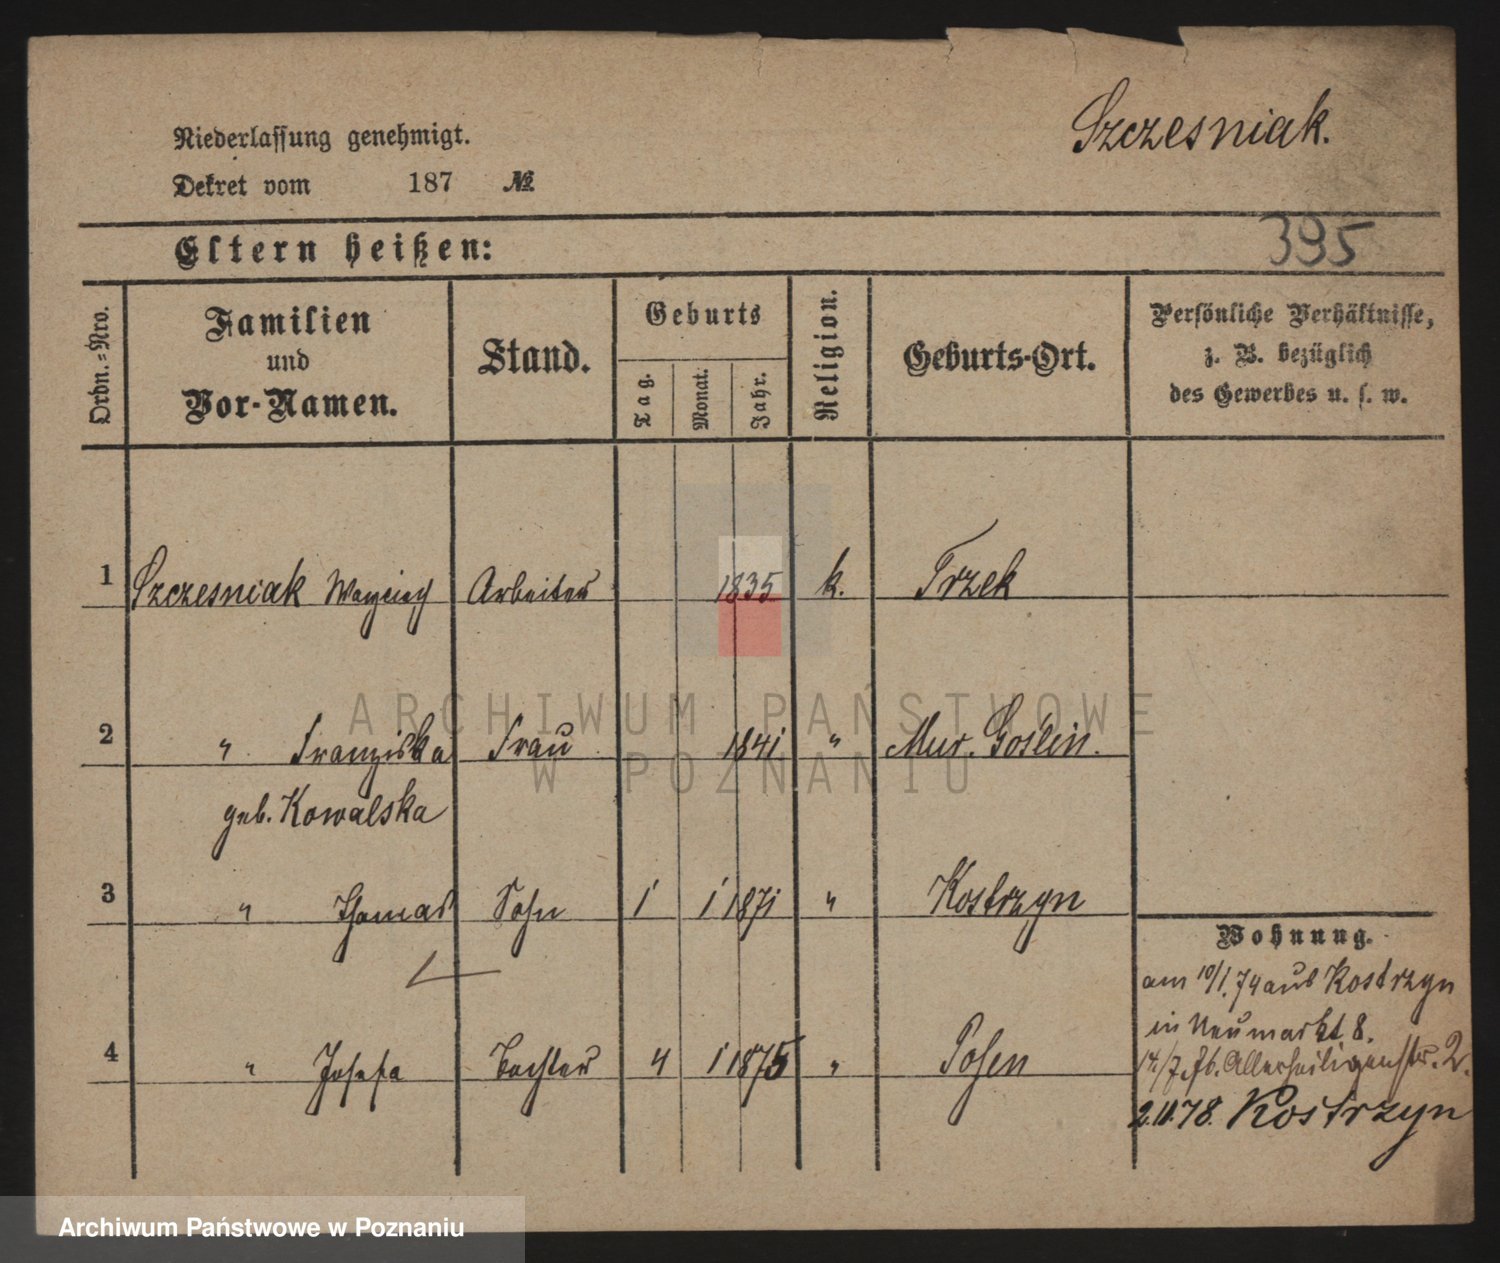 Szczesniak.
Niederlassung genehmigt.
Dekret vom 187 №
Eltern heißen:
395
Ordn.=Nro.
Familien und Vor-Namen.
Stand.
Geburts
Tag.
Monat.
Jahr.
Religion.
Geburts-Ort.
Persönliche Verhältnisse,
z. B. bezüglich
des Gewerbes u. s. w.
1 Szczesniak Woyciech Arbeiter 1835 k. Trzek
2 " Franziska Frau 1841 " Mur. Goślin.
geb. Kowalska
3 " Thomas Sohn 1 1 1871 " Kostrzyn
Wohnung.
am 10/1. 74 aus Kostrzyn
in Neumarkt 8.
4 " Josefa Tochter 4 1 1875 " Posen
14/7. Allerheiligenstr. 2.
2.11.78. Kostrzyn
ARCHIWUM PAŃSTWOWE
W POZNANIU
Archiwum Państwowe w Poznaniu